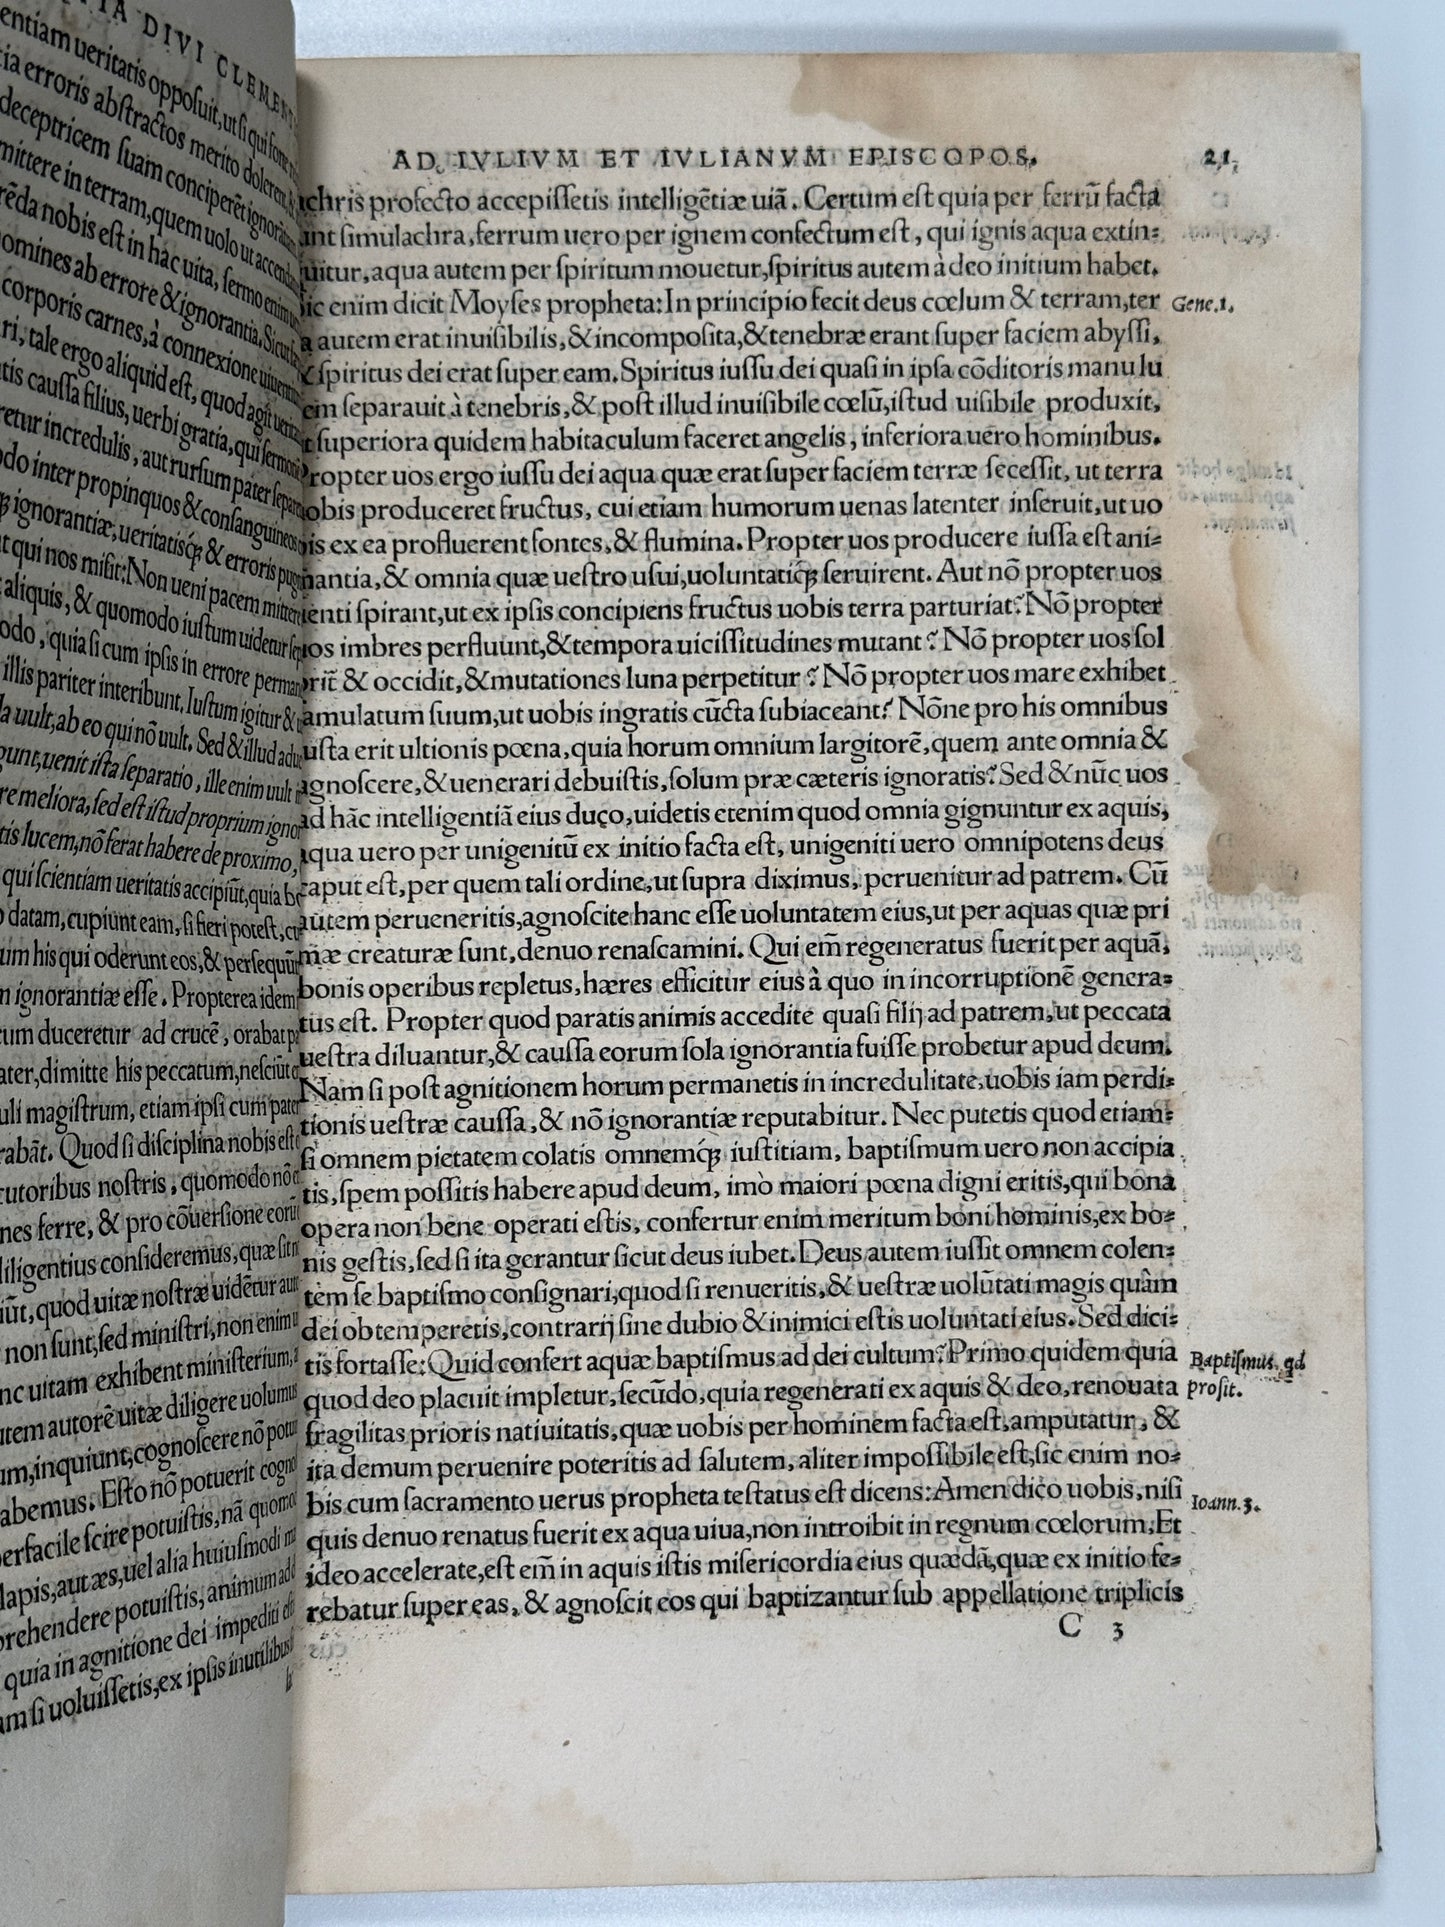 TIA DIVI CLEMENT
entiam ueritatis opposuit, ut si qui forte
tia erroris abstractos merito dolerent,
deceptricem suam conciperēt ignorātiam
mittere in terram, quem uolo ut accendatur
nobis est in hac uita, sermo enim
omines ab errore & ignorantia. Sicut
corporis carnes, à connexione
ri, tale ergo aliquid est, quod agit
tis caussa filius, uerbi gratia, qui sermoni
retur incredulis, aut rursum pater
odo inter propinquos & consanguineos
ignorantiæ, ueritatisq; & erroris
t qui nos misit: Non ueni pacem mittere
aliquis, & quomodo iustum uidetur
odo, quia si cum ipsis in errore
illis pariter interibunt. Iustum igitur &
uult, ab eo qui nō uult. Sed & illud
gunt, uenit ista separatio, ille enim uult
re meliora, sed est istud proprium
tis lucem, nō ferat habere de proximo,
qui scientiam ueritatis accipiūt, quia
datam, cupiunt eam, si fieri potest,
um his qui oderunt eos, &
n ignorantiæ esse. Propterea idem
cum duceretur ad crucē, orabat
ater, dimitte his peccatum, nesciūt
uli magistrum, etiam ipsi cum
rabāt. Quod si disciplina nobis est
cutoribus nostris, quomodo nō
nes ferre, & pro cōuersione
diligentius consideremus, quæ
iūt, quod uitæ nostræ uidētur
non sunt, sed ministri, non enim
nc uitam exhibent ministerium,
utem autorē uitæ diligere
um, inquiunt, cognoscere nō
abemus. Esto nō potuerit
perfacile scire potuistis, nā
lapis, aut æs, uel alia huiusmodi
prehendere potuistis, animum
quia in agnitione dei impediti
am si uoluissetis, ex ipsis inutilibus
AD IVLIVM ET IVLIANVM EPISCOPOS. 21.
chris profecto accepissetis intelligētiæ uiā. Certum est quia per ferrū facta
nt simulachra, ferrum uero per ignem confectum est, qui ignis aqua extin=
uitur, aqua autem per spiritum mouetur, spiritus autem à deo initium habet.
ic enim dicit Moyses propheta: In principio fecit deus cœlum & terram, ter
a autem erat inuisibilis, & incomposita, & tenebræ erant super faciem abyssi,
& spiritus dei erat super eam. Spiritus iussu dei quasi in ipsa cōditoris manu lu
em separauit à tenebris, & post illud inuisibile cœlū, istud uisibile produxit,
t superiora quidem habitaculum faceret angelis, inferiora uero hominibus.
Propter uos ergo iussu dei aqua quæ erat super faciem terræ secessit, ut terra
obis produceret fructus, cui etiam humorum uenas latenter inseruit, ut uo
is ex ea profluerent fontes, & flumina. Propter uos producere iussa est ani=
mantia, & omnia quæ uestro usui, uoluntatiq; seruirent. Aut nō propter uos
uenti spirant, ut ex ipsis concipiens fructus uobis terra parturiat? Nō propter
uos imbres perfluunt, & tempora uicissitudines mutant? Nō propter uos sol
orit̄ & occidit, & mutationes luna perpetitur? Nō propter uos mare exhibet
amulatum suum, ut uobis ingratis cūcta subiaceant? Nōne pro his omnibus
iusta erit ultionis pœna, quia horum omnium largitorē, quem ante omnia &
agnoscere, & uenerari debuistis, solum præ cæteris ignoratis? Sed & nūc uos
ad hāc intelligentiā eius duco, uidetis etenim quod omnia gignuntur ex aquis,
aqua uero per unigenitū ex initio facta est, unigeniti uero omnipotens deus
caput est, per quem tali ordine, ut supra diximus, peruenitur ad patrem. Cū
autem perueneritis, agnoscite hanc esse uoluntatem eius, ut per aquas quæ pri
mæ creaturæ sunt, denuo renascamini. Qui em̄ regeneratus fuerit per aquā,
bonis operibus repletus, hæres efficitur eius à quo in incorruptionē genera=
tus est. Propter quod paratis animis accedite quasi filij ad patrem, ut peccata
uestra diluantur, & caussa eorum sola ignorantia fuisse probetur apud deum.
Nam si post agnitionem horum permanetis in incredulitate, uobis iam perdi=
tionis uestræ caussa, & nō ignorantiæ reputabitur. Nec putetis quod etiam=
si omnem pietatem colatis omnemq; iustitiam, baptismum uero non accipia
tis, spem possitis habere apud deum, imò maiori pœna digni eritis, qui bona
opera non bene operati estis, confertur enim meritum boni hominis, ex bo=
nis gestis, sed si ita gerantur sicut deus iubet. Deus autem iussit omnem colen=
tem se baptismo consignari, quod si renueritis, & uestræ uolūtati magis quàm
dei obtemperetis, contrarij sine dubio & inimici estis uoluntati eius. Sed dici=
tis fortasse: Quid confert aquæ baptismus ad dei cultum? Primo quidem quia
quod deo placuit impletur, secūdo, quia regenerati ex aquis & deo, renouata
fragilitas prioris natiuitatis, quæ uobis per hominem facta est, amputatur, &
ita demum peruenire poteritis ad salutem, aliter impossibile est, sic enim no=
bis cum sacramento uerus propheta testatus est dicens: Amen dico uobis, nisi
quis denuo renatus fuerit ex aqua uiua, non introibit in regnum cœlorum, Et
ideo accelerate, est em̄ in aquis istis misericordia eius quædā, quæ ex initio fe=
rebatur super eas, & agnoscit eos qui baptizantur sub appellatione triplicis
C 3
Gene.1.
Baptismus qd
prosit.
Ioann.3.